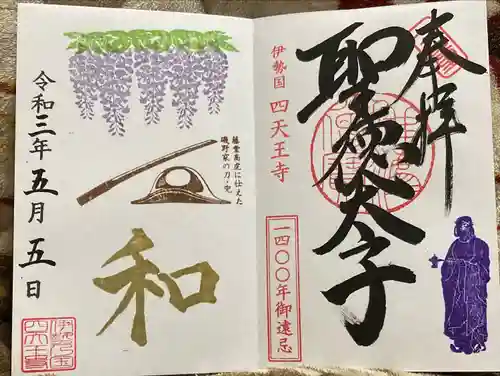 奉拝
伊勢国 四天王寺
聖徳太子
一四〇〇年御遠忌
藤堂高虎に仕えた
磯野家の刀・兜
和
令和三年五月五日